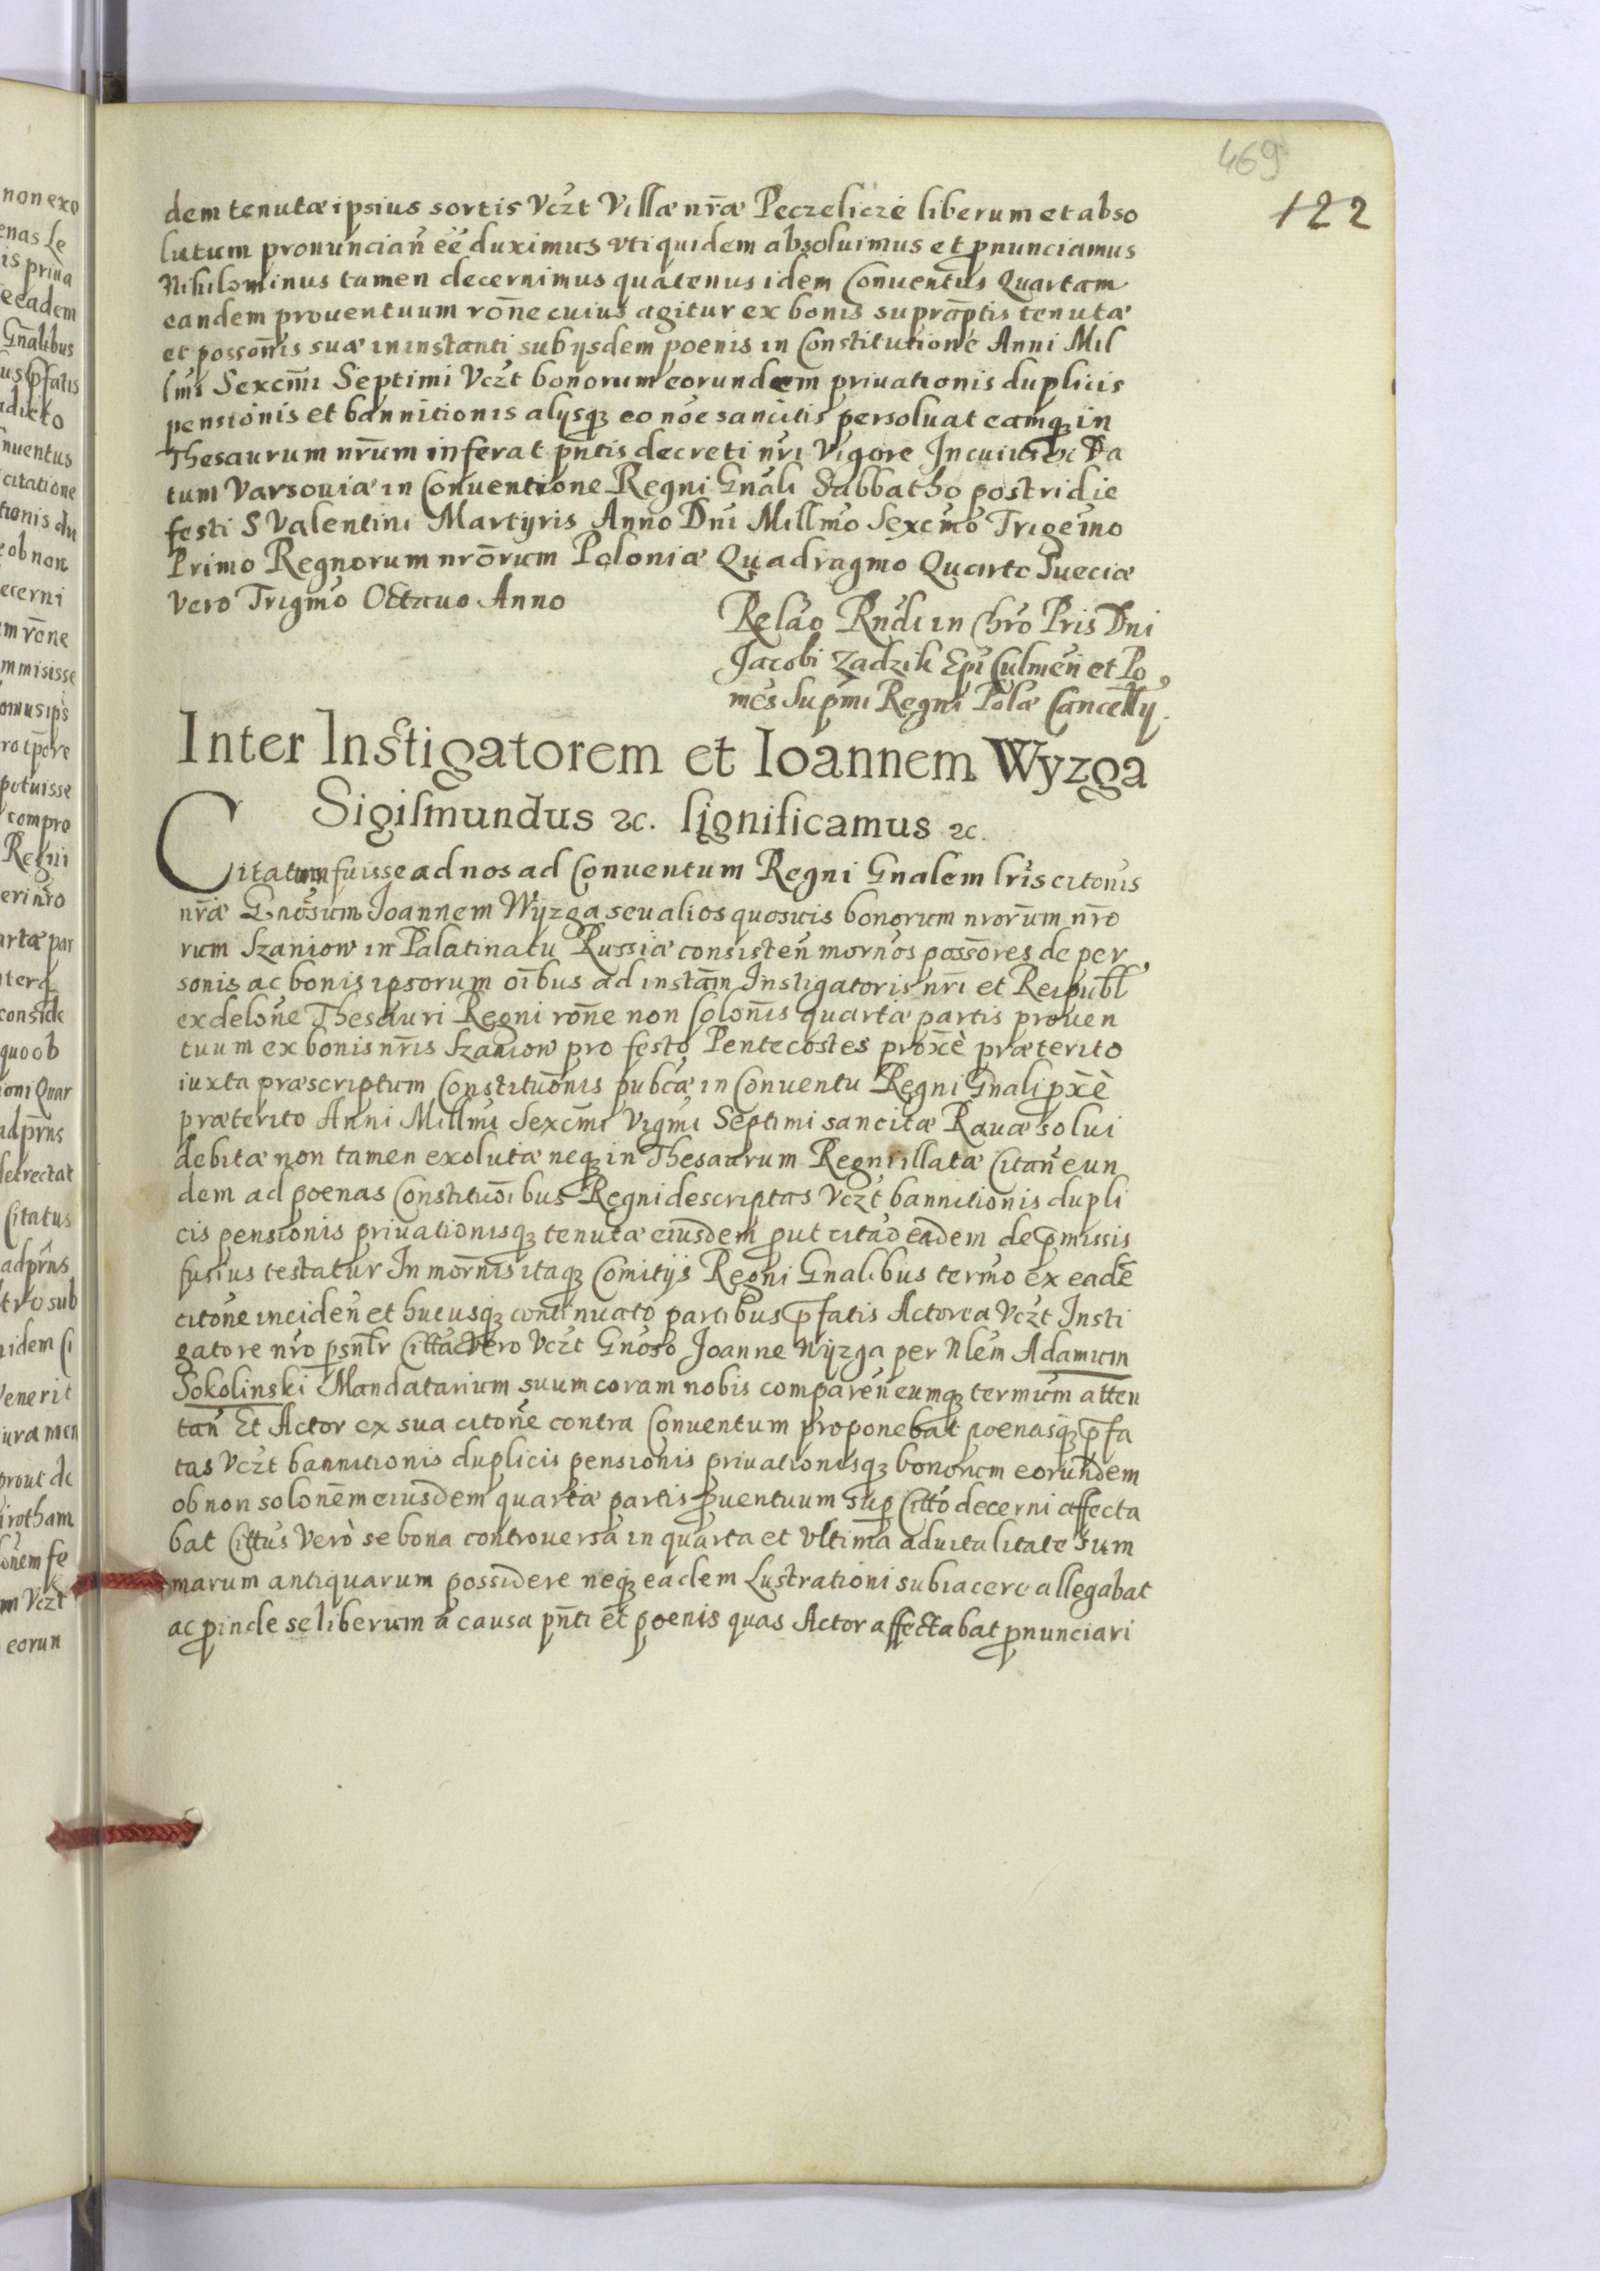 469
122
dem tenutæ ipsius sortis Vczt Villæ nr̄æ Peczelicze liberum et abso
lutum pronuncian̄ ēe duximus vti quidem absoluimus et ꝓnunciamus
Nihilominus tamen decernimus quatenus idem Conuentus Quartam
eandem prouentuum rōne cuius agitur ex bonis supraꝑtis tenutæ
et posson̄is suæ in instanti sub ijsdem poenis in Constitutione Anni Mil
lmī Sexcm̄i Septimi Vczt bonorum eorundem priuationis duplicis
pensionis et bannitionis alijsqꝫ eo nōe sancitis persoluat eamqꝫ in
Thesaurum nr̄um inferat pn̄tis decreti nr̄i Vigore In cuius ꝛc Da
tum Varsouiæ in Conuentione Regni Gnāli Sabbatho postridie
festi S Valentini Martyris Anno Dn̄i Millm̄o Sexcm̄o Trigeīmo
Primo Regnorum nrōrum Poloniæ Quadragmo Quarto Sueciæ
Vero Trigm̄o Octauo Anno
Relāo Rn̄di in Chrō Pris Dni
Jacobi Zadzik Epī Culmen̄ et Po
mēs Supm̄i Regni Polæ Cancellij.
Inter Instigatorem et Ioannem Wyzga
Sigismundus ꝛc. significamus ꝛc.
Citatum fuisse ad nos ad Conuentum Regni Gnalem lrīs citōnis
nr̄æ Gnōsum Joannem Wyzga seu alios quosuis bonorum nrorum nrō
rum Szaniow in Palatinatu Russiæ consisten̄ mornōs possōres de per
sonis ac bonis ipsorum oībus ad instām Instigatoris nr̄i et Reipubl
ex delōne Thesauri Regni rōne non solon̄is quartæ partis prouen
tuum ex bonis nr̄is Szaniow pro festo Pentecostes prox̄è præterito
iuxta præscriptum Constituōnis pubcæ in Conuentu Regni Gnali px̄è
præterito Anni Millmi Sexcm̄i Vigm̄i Septimi sancitæ Rauæ solui
debitæ non tamen exolutæ neqꝫ in Thesaurum Regni illatæ Citan̄ eun
dem ad poenas Constituōibus Regni descriptas Vczt bannitionis dupli
cis pensionis priuationisqꝫ tenutæ eiusdem ꝓut citāo eadem de p̄missis
fusius testatur In morn̄is itaqꝫ Comitijs Regni Gnalibus termō ex eadē
citōne inciden̄ et hucusqꝫ continuato partibus p̄fatis Actorea Vczt Insti
gatore nr̄o psn̄lr Cittā Vero Vczt Gnōso Joanne Wyzga per Nlem Adamum
Sokolinski Mandatarium suum coram nobis comparen̄ eumqꝫ termīum atten
tan̄ Et Actor ex sua citōne contra Conuentum proponebat poenasqꝫ p̄fa
tas Vczt bannitionis duplicis pensionis priuationisqꝫ bonorum eorundem
ob non solonēm eiusdem quartæ partis ꝓuentuum suꝑ Cittō decerni affecta
bat Cittus Verò se bona controuersa in quarta et Vltima aduitalitate Sum
marum antiquarum possidere neqꝫ eadem Lustrationi subiacere allegabat
ac ꝓinde se liberum a causa pn̄ti et poenis quas Actor affectabat ꝓnunciari